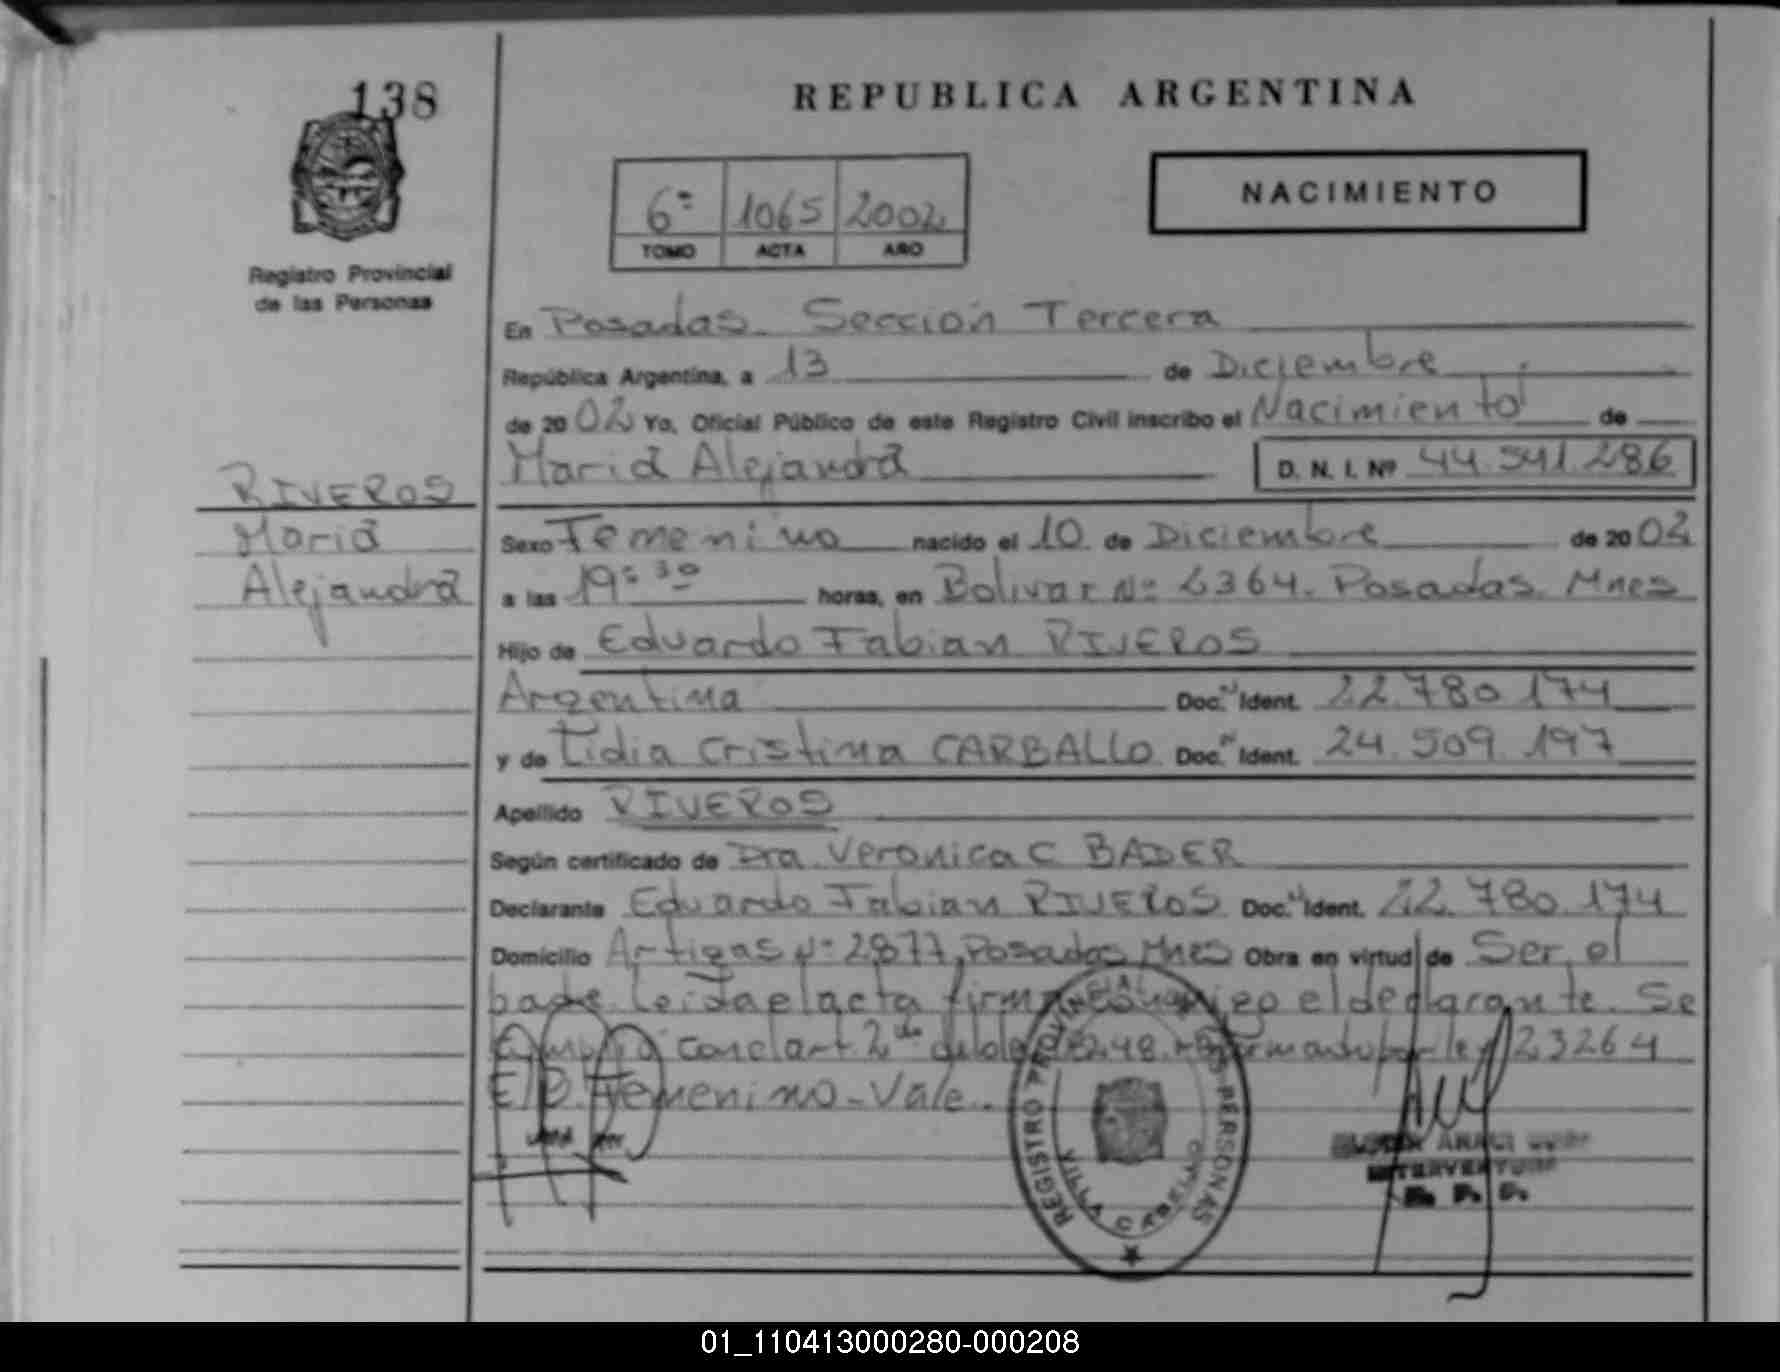 138
REPUBLICA ARGENTINA
6º 1065 2002
TOMO ACTA AÑO
NACIMIENTO
Registro Provincial
de las Personas
En Posadas. Sección Tercera
República Argentina, a 13 de Diciembre
de 2002 Yo, Oficial Público de este Registro Civil inscribo el Nacimiento de
Maria Alejandra D. N. I. Nº 44.541.286
RIVEROS
Maria
Alejandra
Sexo Femenino nacido el 10 de Diciembre de 2002
a las 19:30 horas, en Bolivar Nº 2364. Posadas. Mnes
Hijo de Eduardo Fabian RIVEROS
Argentina Doc. Ident. 22.780.174
y de Lidia Cristina CARBALLO Doc. Ident. 24.509.197
Apellido RIVEROS
Según certificado de Dra. Veronica C BADER
Declarante Eduardo Fabian RIVEROS Doc. Ident. 22.780.174
Domicilio Artigas Nº 2877, Posadas Mnes Obra en virtud de Ser el
padre. Leida el acta firma conmigo el declarante. Se
con el art. 2 por ley 23264
Femenino - Vale.
REGISTRO PROVINCIAL DE LAS PERSONAS
VILLA CABELLO
R. P. P.
01_110413000280-000208